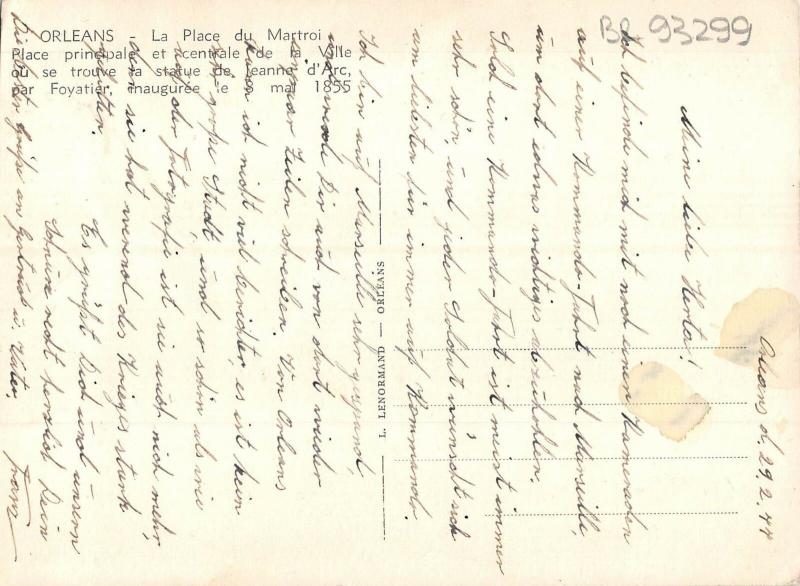 ORLEANS - La Place du Martroi
Place principale et centrale de la Ville
où se trouve la statue de Jeanne d'Arc,
par Foyatier, inaugurée le 8 mai 1855
BR 93299
L. LENORMAND — ORLÉANS
Orleans d. 29.2.44
Meine liebe Herta!
Ich befinde mich mit noch einen Kameraden
auf einer Kommando-Fahrt nach Marseille,
um dort etwas wichtiges abzuhohlen.
Solch eine Kommando-Fahrt ist meist immer
sehr schön, und jeder Soldat wünscht sich
am liebsten für immer auf Kommando.
Ich bin auf Marseille sehr gespannt,
und werde Dir auch von dort wieder
ein paar Zeilen schreiben. Von Orleans
kann ich nicht viel berichten, es ist kein
große Stadt, und so schön als wie
auf der Fotografie ist sie auch nich mehr,
denn sie hat wärend des Krieges stark
gelitten.
Es grüßt Dich und unsern
recht herzlich Dein
Franz
Die lieben Grüße an Gertrud u. Vater.